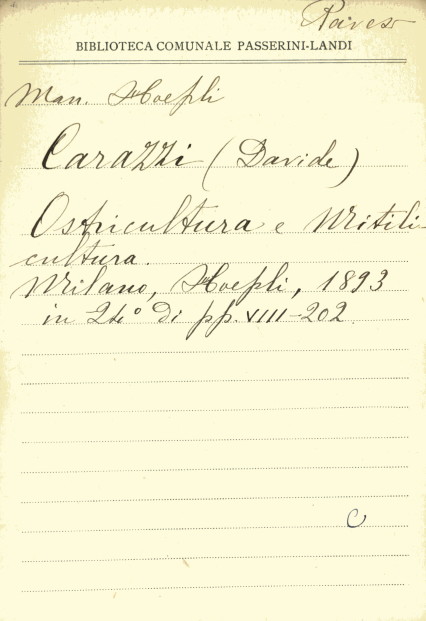 BIBLIOTECA COMUNALE PASSERINI-LANDI
Man. Hoepli
Carazzi (Davide)
Ostricultura e Mitili-
cultura.
Milano, Hoepli, 1893
in 24° di pp. VIII-202
C